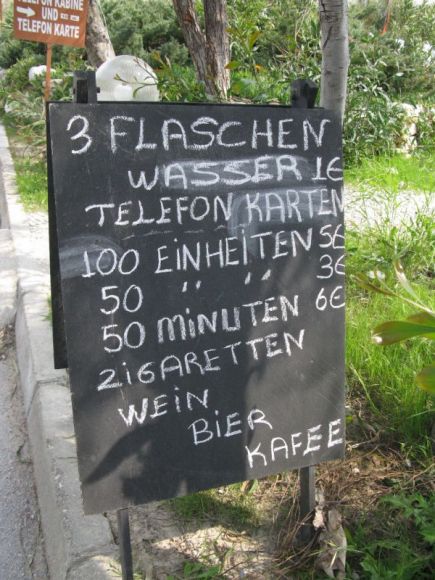 TELEFON KABINE
UND
TELEFON KARTE
3 FLASCHEN
WASSER 1€
TELEFON KARTEN
100 EINHEITEN 5€
50 " " 3€
50 MINUTEN 6€
ZIGARETTEN
WEIN
BIER
KAFEE